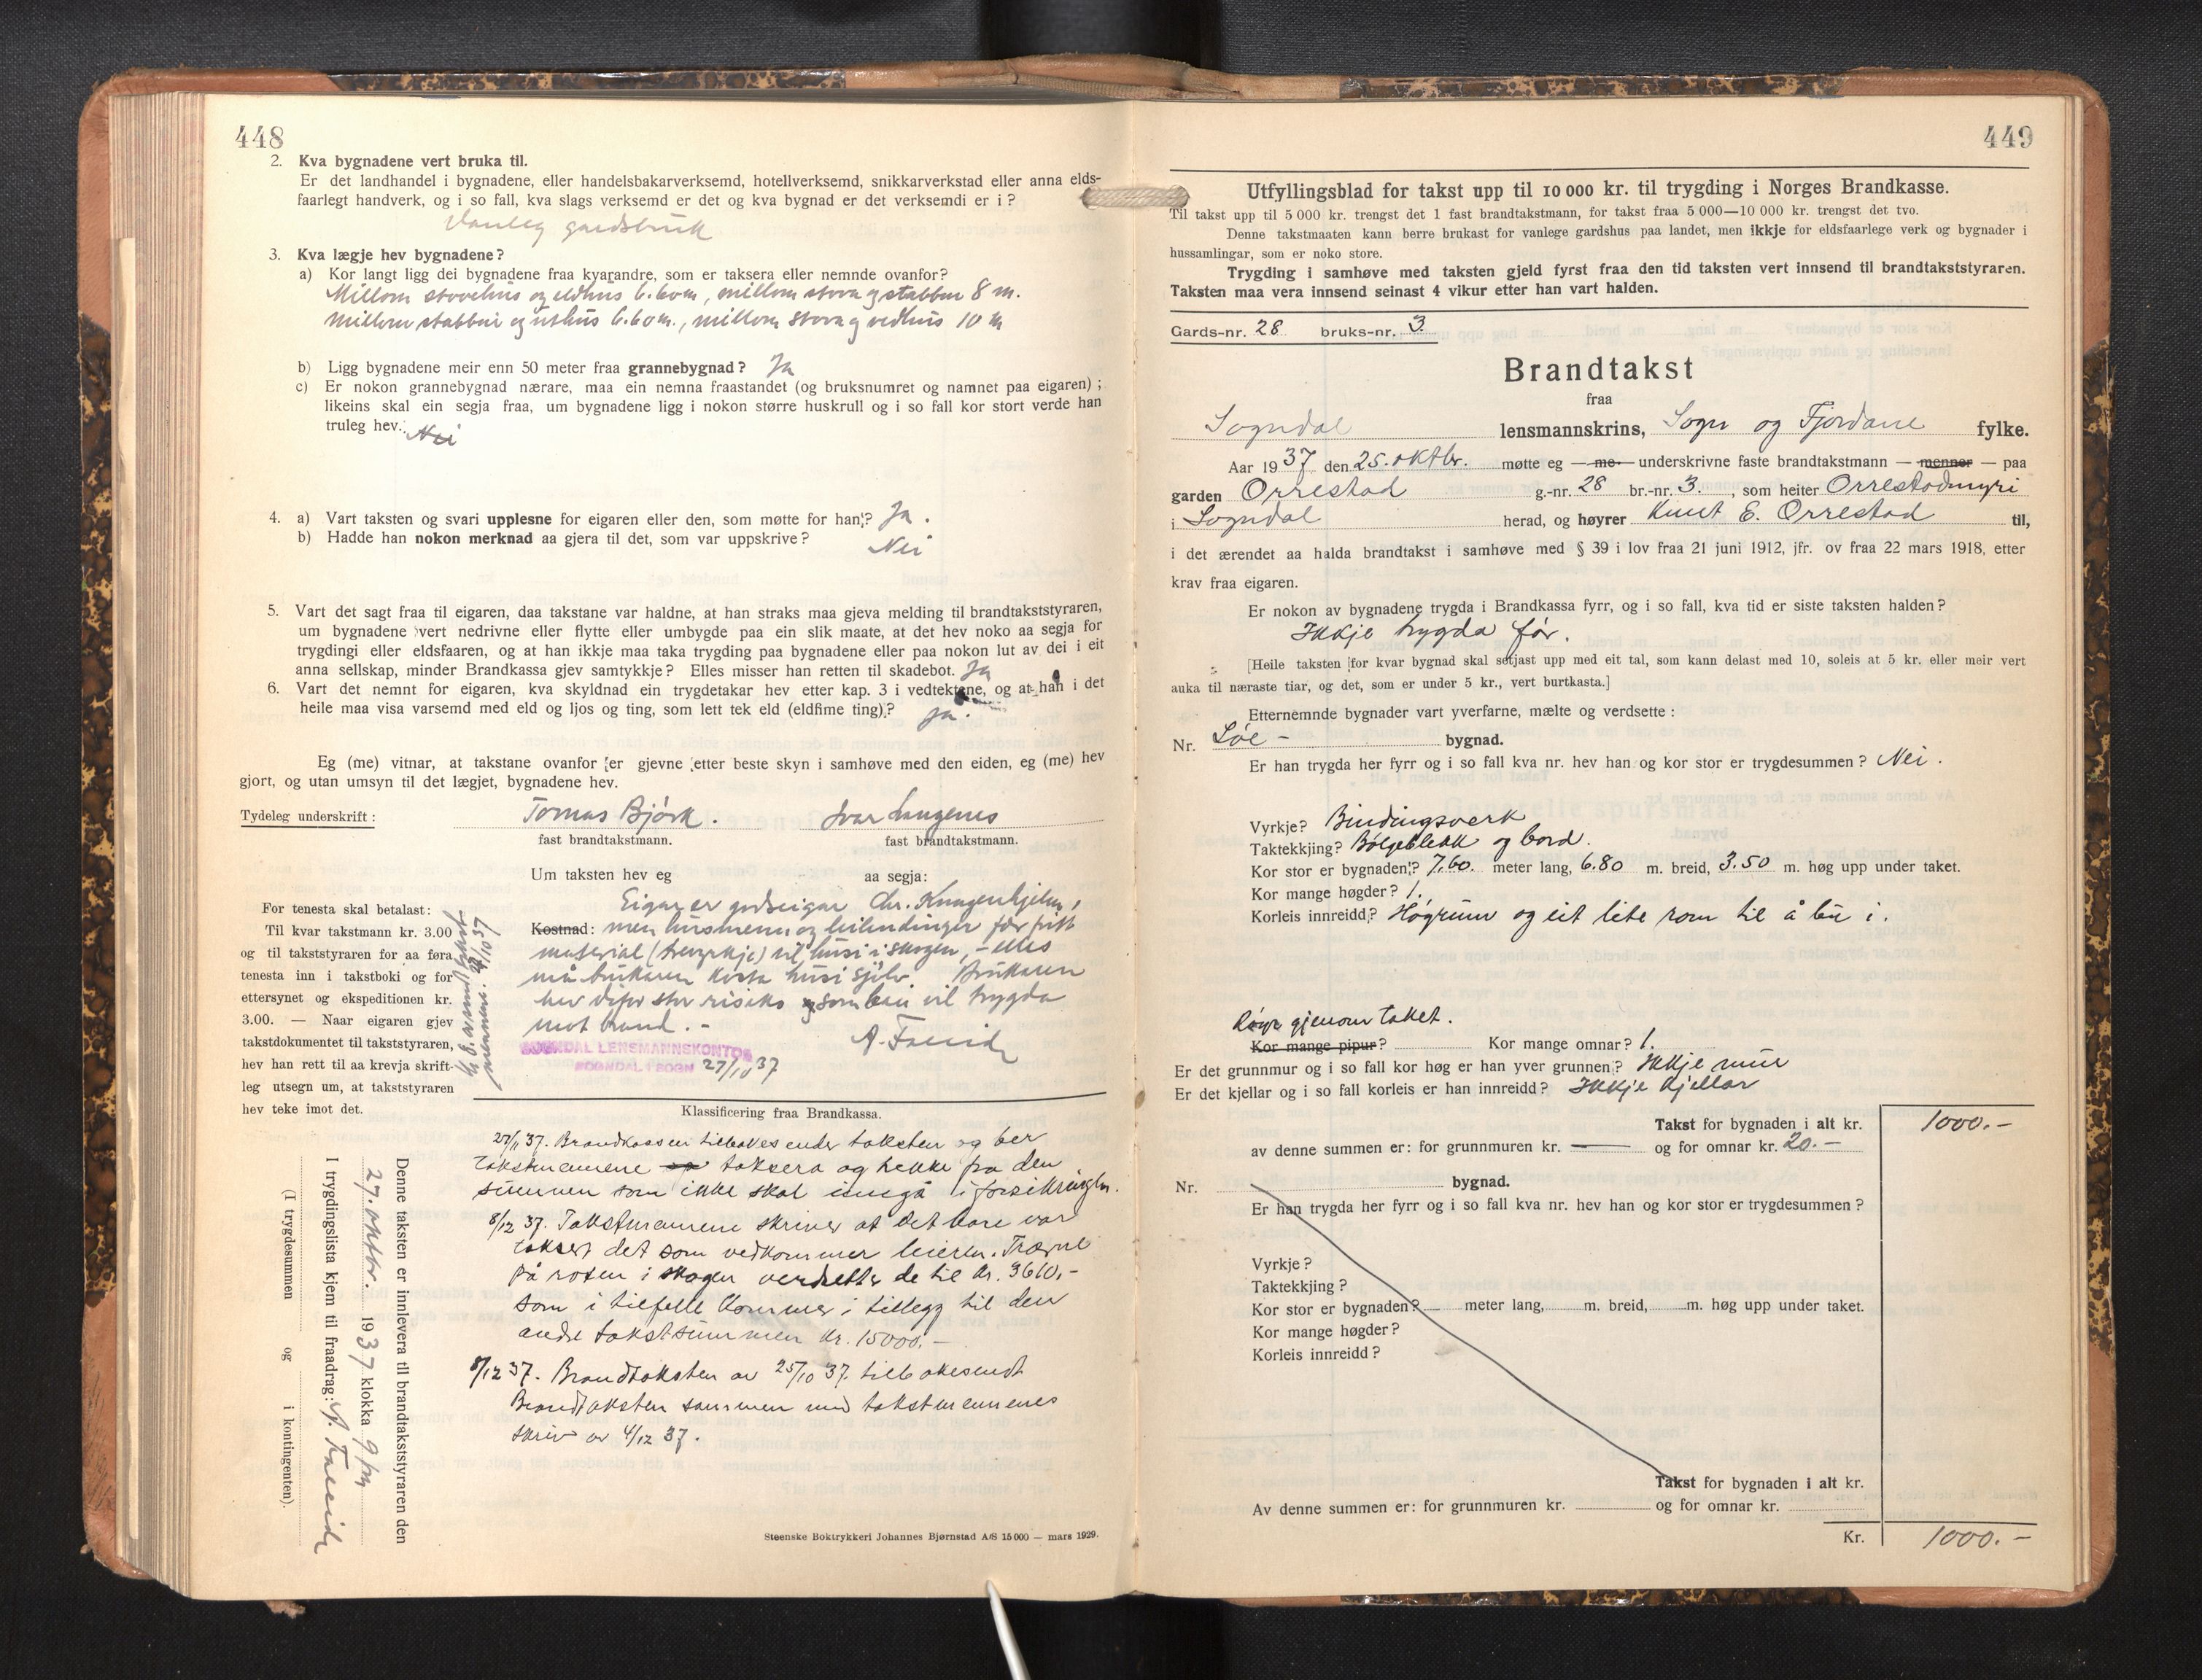 448
2. Kva bygnadene vert bruka til.
Er det landhandel i bygnadene, eller handelsbakarverksemd, hotellverksemd, snikkarverkstad eller anna elds-
faarlegt handverk, og i so fall, kva slags verksemd er det og kva bygnad er det verksemdi er i?
Vanleg gardsbruk
3. Kva lægje hev bygnadene?
a) Kor langt ligg dei bygnadene fraa kvarandre, som er taksera eller nemnde ovanfor?
Millom stovehus og eldhus 6.60 m, millom stova og stabbur 8 m.
millom stabbur og uthus 6.60 m., millom stova og vedhus 10 m
b) Ligg bygnadene meir enn 50 meter fraa grannebygnad? Ja
c) Er nokon grannebygnad nærare, maa ein nemna fraastandet (og bruksnumret og namnet paa eigaren);
likeins skal ein segja fraa, um bygnadene ligg i nokon større huskrull og i so fall kor stort verde han
truleg hev. Nei
4. a) Vart taksten og svari upplesne for eigaren eller den, som møtte for han? Ja.
b) Hadde han nokon merknad aa gjera til det, som var uppskrive? Nei
5. Vart det sagt fraa til eigaren, daa takstane var haldne, at han straks maa gjeva melding til brandtakststyraren,
um bygnadene vert nedrivne eller flytte eller umbygde paa ein slik maate, at det hev noko aa segja for
trygdingi eller eldsfaaren, og at han ikkje maa taka trygding paa bygnadene eller paa nokon lut av dei i eit
anna sellskap, minder Brandkassa gjev samtykkje? Elles misser han retten til skadebot. Ja
6. Vart det nemnt for eigaren, kva skyldnad ein trygdetakar hev etter kap. 3 i vedtektene, og at han i det
heile maa visa varsemd med eld og ljos og ting, som lett tek eld (eldfime ting)? Ja.
Eg (me) vitnar, at takstane ovanfor er gjevne etter beste skyn i samhøve med den eiden, eg (me) hev
gjort, og utan umsyn til det lægjet, bygnadene hev.
Tydeleg underskrift: Tomas Bjørk. Ivar Laugenes
fast brandtakstmann. fast brandtakstmann.
Um taksten hev eg aa segja:
Eigar er godseigar Chr. Knagenhjelm,
Kostnad: men husmenn og leilendinger får fritt
material (trevyrkje) til husi i skogen, - elles
må brukaren kosta husi sjølv. Brukaren
hev difor stor risiko som han vil trygda
mot brand. -
A. Fareide
SOGNDAL LENSMANNSKONTOR
SOGNDAL I SOGN 27/10 37
For tenesta skal betalast:
Til kvar takstmann kr. 3.00
og til takststyraren for aa føra
tenesta inn i takstboki og for
ettersynet og ekspeditionen kr.
3.00. — Naar eigaren gjev
takstdokumentet til takststyraren,
hev han rett til aa krevja skrift-
leg utsegn um, at takststyraren
hev teke imot det.
Klassificering fraa Brandkassa.
27/11 37. Brandkassen tilbakesender taksten og ber
takstmennene taksera og trekke fra den
summen som ikke skal inngå i forsikringen.
8/12 37. Takstmennene skriver at det bare var
taksert det som vedkommer leieren. Trærne
på roten i skogen verdsetter de til kr. 3610,-
som i tilfelle kommer i tillegg til den
andre takstsummen kr. 15000.-
8/12 37. Brandtaksten av 25/10 37. tilbakesendt
Brandkassen sammen med takstmennenes
skriv av 4/12 37.
Denne taksten er innlevera til brandtakststyraren den
27. oktbr. 1937 klokka 9 fm
I trygdingslista kjem til fraadrag: A. Fareide
(I trygdesummen og i kontingenten).
Steenske Boktrykkeri Johannes Bjørnstad A/S 15 000 — mars 1929.
449
Utfyllingsblad for takst upp til 10 000 kr. til trygding i Norges Brandkasse.
Til takst upp til 5 000 kr. trengst det 1 fast brandtakstmann, for takst fraa 5 000—10 000 kr. trengst det tvo.
Denne takstmaaten kann berre brukast for vanlege gardshus paa landet, men ikkje for eldsfaarlege verk og bygnader i
hussamlingar, som er noko store.
Trygding i samhøve med taksten gjeld fyrst fraa den tid taksten vert innsend til brandtakststyraren.
Taksten maa vera innsend seinast 4 vikur etter han vart halden.
Gards-nr. 28 bruks-nr. 3
Brandtakst
fraa
Sogndal lensmannskrins, Sogn og Fjordane fylke.
Aar 1937 den 25. oktbr. møtte eg — me — underskrivne faste brandtakstmann — menner — paa
garden Orrestad g.-nr. 28 br.-nr. 3., som heiter Orrestadmyri
i Sogndal herad, og høyrer Knut E. Orrestad til,
i det ærendet aa halda brandtakst i samhøve med § 39 i lov fraa 21 juni 1912, jfr. ov fraa 22 mars 1918, etter
krav fraa eigaren.
Er nokon av bygnadene trygda i Brandkassa fyrr, og i so fall, kva tid er siste taksten halden?
Ikkje trygda før.
[Heile taksten for kvar bygnad skal setjast upp med eit tal, som kann delast med 10, soleis at 5 kr. eller meir vert
auka til næraste tiar, og det, som er under 5 kr., vert burtkasta.]
Etternemnde bygnader vart yverfarne, mælte og verdsette:
Nr. Løe - bygnad.
Er han trygda her fyrr og i so fall kva nr. hev han og kor stor er trygdesummen? Nei.
Vyrkje? Bindingsverk
Taktekkjing? Bølgeblekk og bord.
Kor stor er bygnaden? 7.60. meter lang, 6.80 m. breid, 3.50 m. høg upp under taket.
Kor mange høgder? 1.
Korleis innreidd? Høgrum og eit lite rom til å bu i.
Røyr gjenom taket.
Kor mange pipur? Kor mange omnar? 1.
Er det grunnmur og i so fall kor høg er han yver grunnen? Ikkje mur
Er det kjellar og i so fall korleis er han innreidd? Ikkje kjellar
Takst for bygnaden i alt kr. 1000.-
av denne summen er: for grunnmuren kr. — og for omnar kr. 20.-
Nr. bygnad.
Er han trygda her fyrr og i so fall kva nr. hev han og kor stor er trygdesummen?
Vyrkje?
Taktekkjing?
Kor stor er bygnaden? meter lang, m. breid, m. høg upp under taket.
Kor mange høgder?
Korleis innreidd?
Takst for bygnaden i alt kr.
Av denne summen er: for grunnmuren kr. og for omnar kr.
Kr. 1000.-